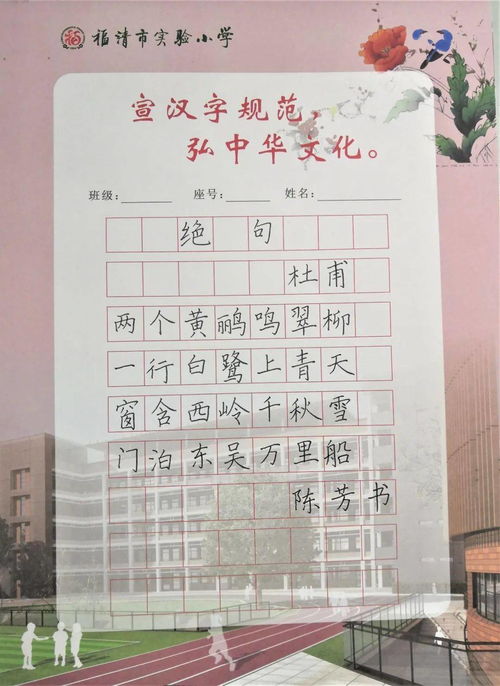 福清市实验小学
宣汉字规范，
弘中华文化。
班级：______ 座号：______ 姓名：______
绝句
杜甫
两个黄鹂鸣翠柳
一行白鹭上青天
窗含西岭千秋雪
门泊东吴万里船
陈芳书